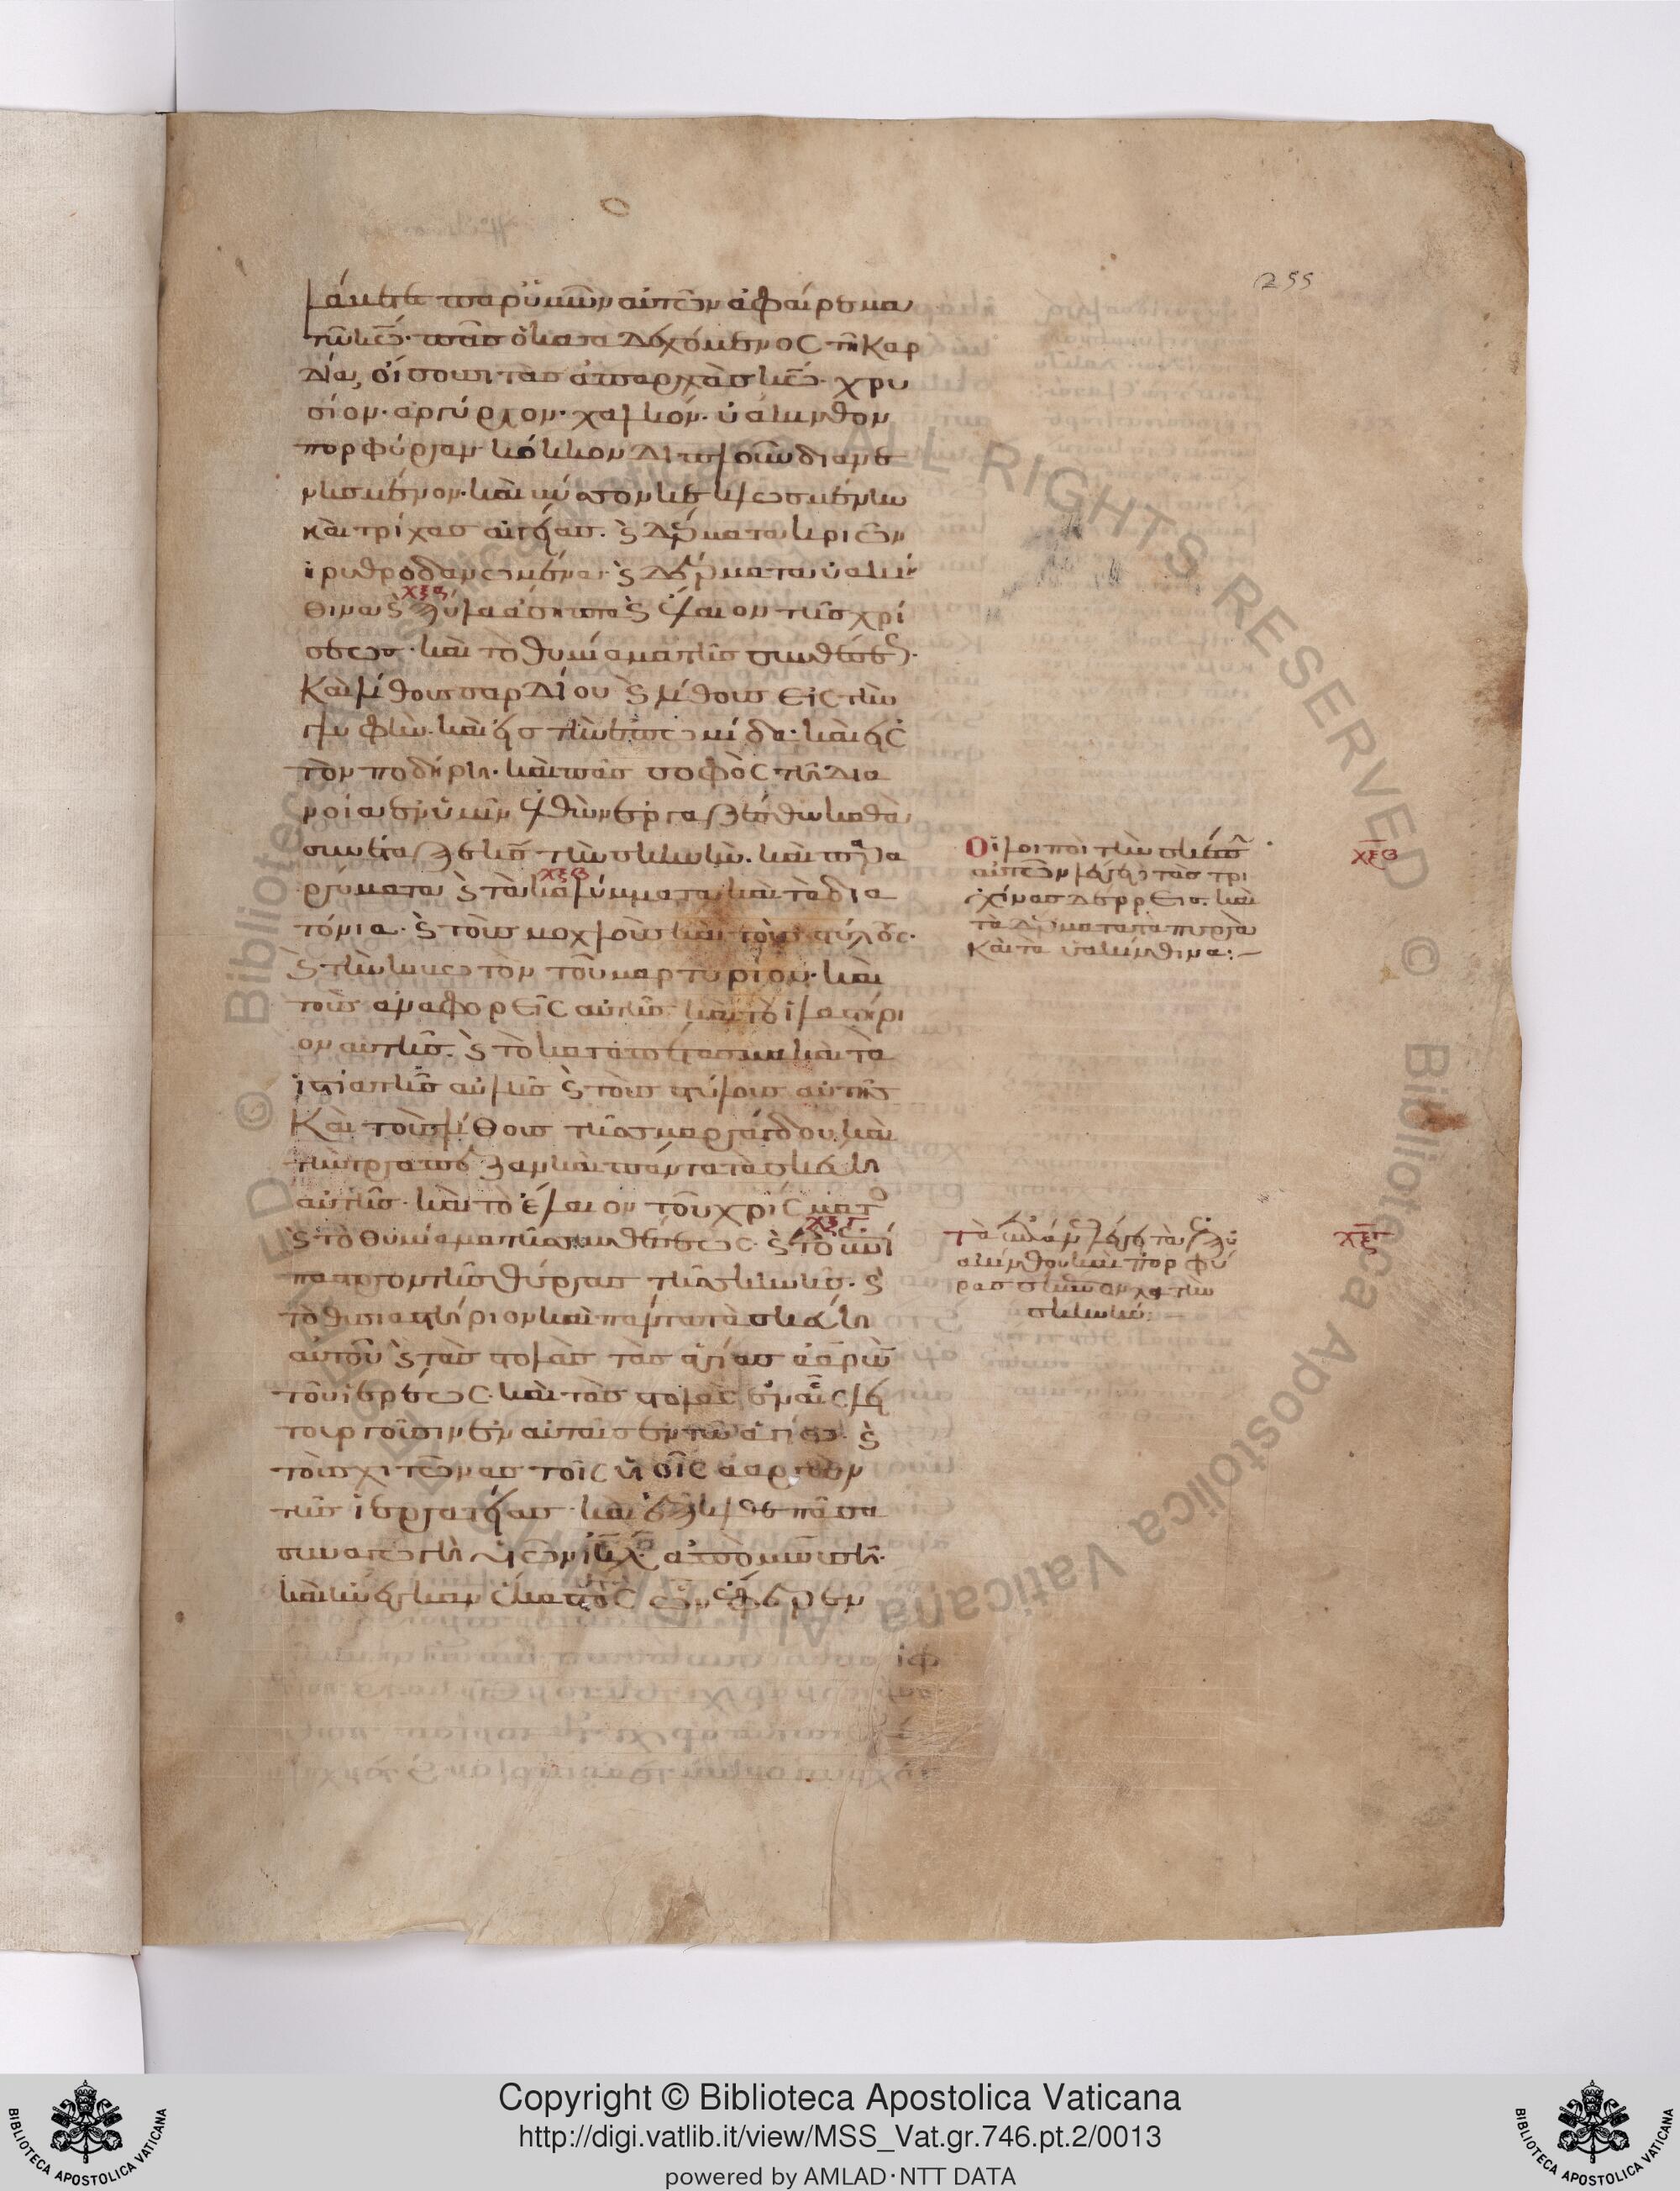 255
λάβετε παρ' ὑμῶν αὐτῶν ἀφαίρεμα
τῷ κ͞ω· πᾶς ὁ καταδεχόμενος τῇ καρ
δία, οἴσουσι τὰς ἀπαρχὰς κ͞ω· χρυ
σίον· ἀργύριον· χαλκόν· ὑάκινθον
πορφύραν κόκκινον διπλοῦν διανε
νησμένον· καὶ βύσσον κεκλωσμένην
καὶ τρίχας αἰγείας· ϗ δέρματα κριῶν
ἠρυθροδανωμένα· ϗ δέρματα ὑακίν
θινα ϗ ξύλα ἄσηπτα ϗ ἔλαιον τῆς χρί
σεως· καὶ τὸ θυμίαμα τῆς συνθέσεως·
Καὶ λίθους σαρδίου ϗ λίθους εἰς τὴν
γλυφὴν· καὶ εἰς τὴν ἐπωμίδα· καὶ εἰς
τὸν ποδήρη· καὶ πᾶς σοφὸς τῇ δια
νοία ἐν ὑμῖν ἐλθὼν ἐργαζέσθω καθὰ
συνέταξε κ͞ς τὴν σκηνὴν· καὶ τὰ πα
ραρύματα ϗ τὰ καλύμματα καὶ τὰ δια
τόνια· ϗ τοὺς μοχλοὺς καὶ τοὺς στύλους·
ϗ τὴν κιβωτὸν τοῦ μαρτυρίου· καὶ
τοὺς ἀναφορεῖς αὐτῆς· καὶ τὸ ἱλαστήρι
ον αὐτῆς· ϗ τὸ καταπέτασμα καὶ τὰ
ἱστία τῆς αὐλῆς ϗ τοὺς στύλους αὐτῆς
Καὶ τοὺς λίθους τῆς σμαράγδου· καὶ
τὴν τράπεζαν καὶ πάντα τὰ σκεύη
αὐτῆς· καὶ τὸ ἔλαιον τοῦ χρίσματος
ϗ τὸ θυμίαμα τῆς συνθέσεως· ϗ τὸ ἐπί
σπαστρον τῆς θύρας τῆς σκηνῆς· ϗ
τὸ θυσιαστήριον καὶ πάντα τὰ σκεύη
αὐτοῦ ϗ τὰς στολὰς τὰς ἁγίας ἀαρὼν
τοῦ ἱερέως· καὶ τὰς στολὰς ἐν αἷς λει
τουργοῦσιν ἐν αὐταῖς ἐν τῷ ἁγίω· ϗ
τοὺς χιτῶνας τοῖς υἱοῖς ἀαρὼν
τῆς ἱερατείας· καὶ ἐξῆλθε πᾶσα
συναγωγὴ υἱῶν ἰ͞η͞λ ἀπὸ μωυσῆ·
καὶ ἤνεγκαν ἕκαστος ὧν ἔφερεν
χξα
χξβ
χξγ
Οἱ λοιποὶ τὴν σκέπην
αὐτῶν λέγει τὰς τρι
χίνας δέρρεις· καὶ
τὰ δέρματα τὰ πυρρὰ
Καὶ τὰ ὑακίνθινα:—
χξβ
ακίνθου καὶ πορφύ
ρας
σκηνήν:
χξγ
Copyright © Biblioteca Apostolica Vaticana
http://digi.vatlib.it/view/MSS_Vat.gr.746.pt.2/0013
powered by AMLAD·NTT DATA
BIBLIOTECA APOSTOLICA VATICANA
BIBLIOTECA APOSTOLICA VATICANA
© Biblioteca Apostolica Vaticana ALL RIGHTS RESERVED